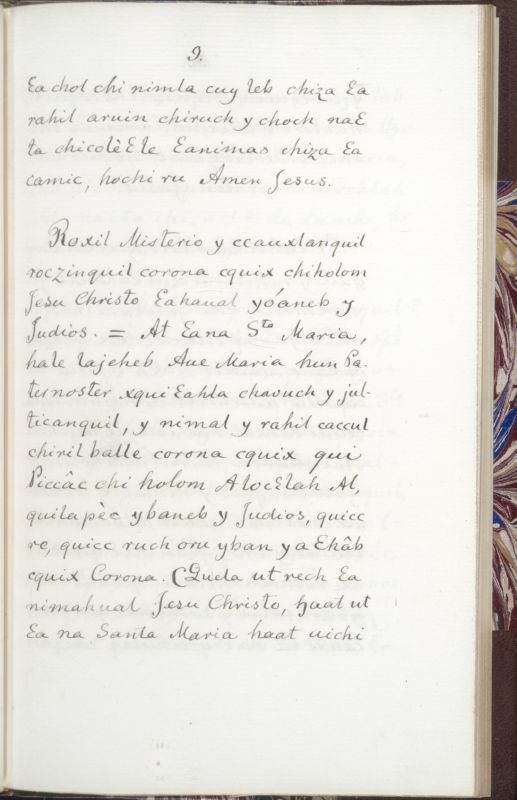 9.
Ɛa chol chi nimla cuy leb chiza Ɛa
rahil aruin chiruch y choch naƐ
ta chicolèƐle Ɛanimas chiza Ɛa
camic, hochi ru Amen Jesus.
Roxil Misterio y ccauxlanquil
roczinquil corona cquix chiholom
Jesu Christo Ɛahaual yóaneb y
Judios. = At Ɛana Sta Maria,
hale lajeheb Aue Maria hun Pa-
ternoster xqui Ɛahla chavuch y jul-
ticanquil, y nimal y rahil caccul
chiril balle corona cquix qui
Piccâc chi holom AlocƐlah Al,
quila pèc ybaneb y Judios, quicc
re, quicc ruch oru yban y a Ɛhâb
cquix Corona. (Quela ut rech Ɛa
nimahual Jesu Christo, haat ut
Ɛa na Santa Maria haat uichi